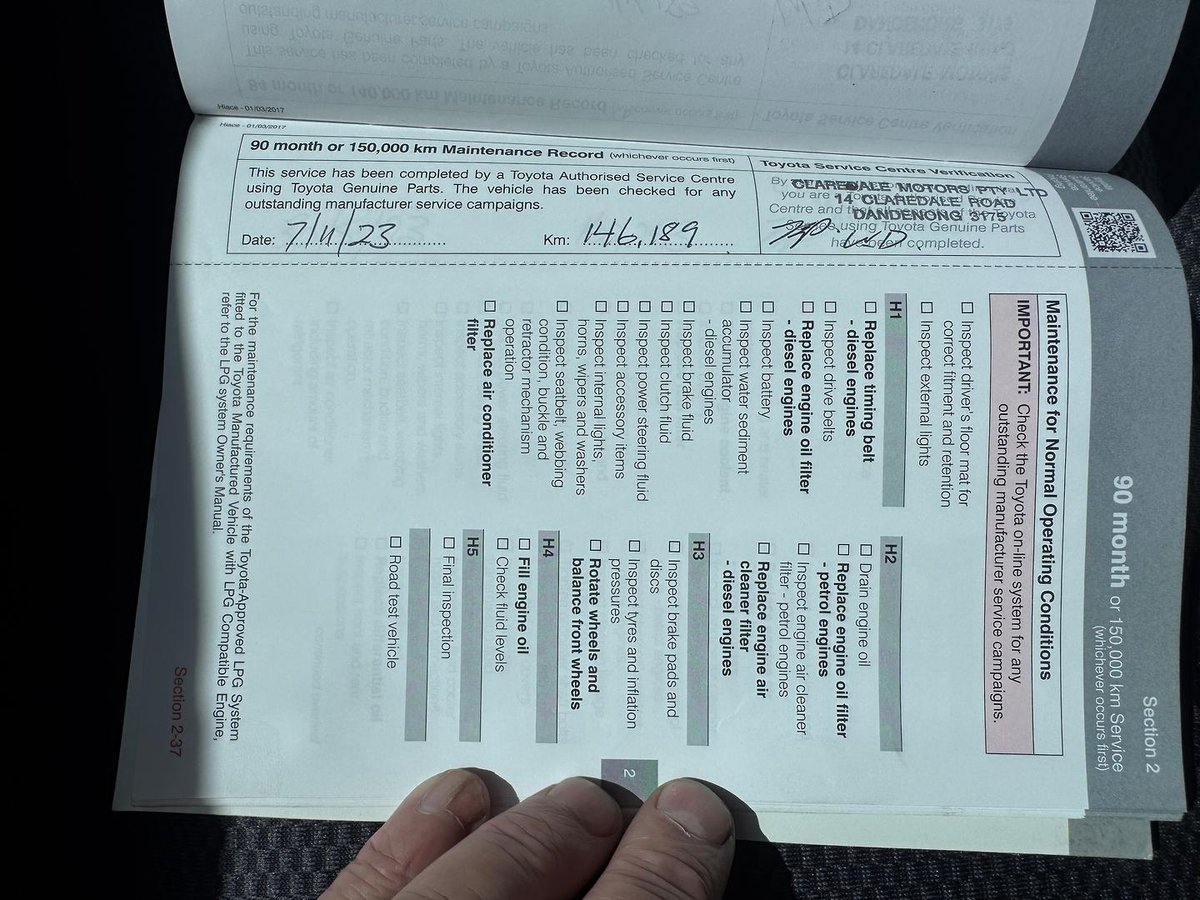 Hiace - 01/03/2017
Hiace - 01/03/2017
90 month or 150,000 km Maintenance Record (whichever occurs first)
This service has been completed by a Toyota Authorised Service Centre
using Toyota Genuine Parts. The vehicle has been checked for any
outstanding manufacturer service campaigns.
Date: 7/11/23
Km: 146,189
Toyota Service Centre Verification
CLAREDALE MOTORS PTY LTD
14 CLAREDALE ROAD
DANDENONG 3175
you are a
Centre and
using Toyota Genuine Parts
have been completed.
Section 2
90 month or 150,000 km Service
(whichever occurs first)
Maintenance for Normal Operating Conditions
IMPORTANT: Check the Toyota on-line system for any
outstanding manufacturer service campaigns.
☐ Inspect driver's floor mat for
correct fitment and retention
☐ Inspect external lights
H1
☐ Replace timing belt
- diesel engines
☐ Inspect drive belts
☐ Replace engine oil filter
- diesel engines
☐ Inspect battery
☐ Inspect water sediment
accumulator
- diesel engines
☐ Inspect brake fluid
☐ Inspect clutch fluid
☐ Inspect power steering fluid
☐ Inspect accessory items
☐ Inspect internal lights,
horns, wipers and washers
☐ Inspect seatbelt, webbing
condition, buckle and
retractor mechanism
operation
☐ Replace air conditioner
filter
H2
☐ Drain engine oil
☐ Replace engine oil filter
- petrol engines
☐ Inspect engine air cleaner
filter - petrol engines
☐ Replace engine air
cleaner filter
- diesel engines
H3
☐ Inspect brake pads and
discs
☐ Inspect tyres and inflation
pressures
☐ Rotate wheels and
balance front wheels
H4
☐ Fill engine oil
☐ Check fluid levels
H5
☐ Final inspection
☐ Road test vehicle
For the maintenance requirements of the Toyota-Approved LPG System
fitted to the Toyota Manufactured Vehicle with LPG Compatible Engine,
refer to the LPG system Owner's Manual.
2
Section 2-37